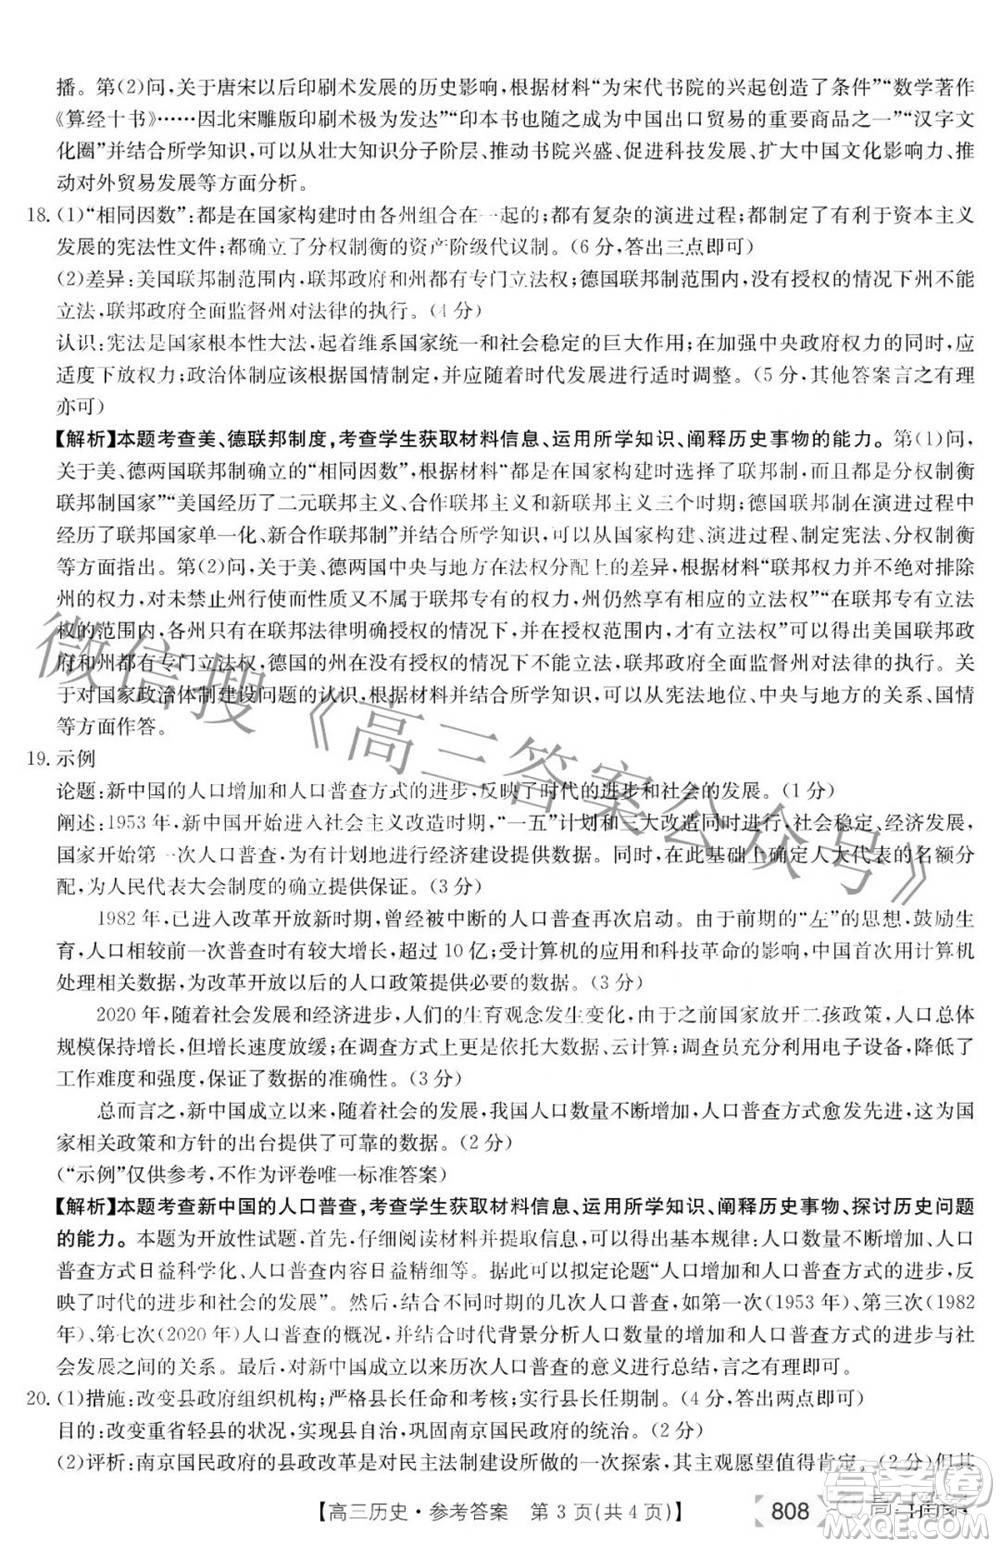 播。第(2)问,关于唐宋以后印刷术发展的历史影响,根据材料“为宋代书院的兴起创造了条件”“数学著作
《算经十书》……因北宋雕版印刷术极为发达”“印本书也不断成为中国出口贸易的重要商品之一”“汉字文
化圈”并结合所学知识,可以从壮大知识分子阶层、推动书院兴盛、促进科技发展、扩大中国文化影响、推
动对外贸易发展等方面分析。
18. (1)“相同因数”:都是在国家构建时由各州组合在一起的;都有复杂的演进过程;都制定了有利于资本主义
发展的宪法性文件;都确立了分权制衡的资产阶级代议制。(6分,答出三点即可)
(2)差异:美国联邦制范围内,联邦政府和州都有专门立法权;德国联邦制范围内,没有授权的情况州不能
立法,联邦政府全面监督州对法律的执行。(4分)
认识:宪法是国家根本性大法,起着维系国家统一和社会稳定的巨大作用;在加强中央政府权力的同时,应
适度下放权力;政治体制应该根据国情制定,并应随着时代发展进行适时调整。(5分,其他答案言之有理
亦可)
【解析】本题考查美、德联邦制度,考查学生获取材料信息、运用所学知识、阐释历史事物的能力。第(1)问,
关于美、德两国联邦制确立的“相同因数”,根据材料“都是在国家构建时选择了联邦制,都是分权制衡
联邦制国家”“美国经历了二元联邦主义、合作联邦主义和新联邦主义三个时期;德国联邦制在演进过程中
经历了联邦国家单一化、新合作联邦制”并结合所学知识,可以从国家构建、演进过程、宪法保障、权力制衡
等方面指出。第(2)问,关于美、德两国中央与地方在立法权分配上的差异,根据材料“联邦权力并不绝对排除
州的权力,对未禁止州行使而同时又不属于联邦专有的权力,州仍然享有相应的立法权”“在联邦专有立法
权的范围内,各州只有在联邦法律明确授权的情况下,并在授权的范围内,才有立法权”可以得出美国联邦政
府和州都有专门立法权;德国的州在没有授权的情况下不能立法,联邦政府全面监督州对法律的执行。关
于对国家政治体制建设问题的认识,根据材料并结合所学知识,可以从宪法地位、中央与地方的关系、国情
等方面作答。
19. 示例
论题:新中国的人口增加和人口普查方式的进步,反映了时代的进步和社会的发展。(1分)
阐述:1953年,新中国开始进入社会主义改造时期,“一五”计划和三大改造同时进行,社会稳定、经济发展,
国家开始第一次人口普查,为有计划地进行经济建设提供数据。同时,在此基础上确定人大代表的名额分
配,为人民代表大会制度的确立提供保证。(3分)
1982年,已进入改革开放新时期,曾经被中断的人口普查再次启动。由于前期的“左”的思想,鼓励生
育,人口较第一次普查时有较大增长,超过10亿;受计算机的应用和科技革命的影响,中国首次用计算机
处理相关数据,为改革开放以后的人口政策提供必要的数据。(3分)
2020年,随着社会发展和经济进步,人们的生育观念发生变化,由于之前国家放开二孩政策,人口总体
规模保持增长,但增长速度放缓;在调查方式上更是依托大数据、云计算;调查员充分利用电子设备,降低了
工作难度和强度,保证了数据的准确性。(3分)
总而言之,新中国成立以来,随着社会的发展,我国人口数量不断增加,人口普查方式愈发先进,这为国
家相关政策和方针的出台提供了可靠的数据。(2分)
(“示例”仅供参考,不作为评卷唯一标准答案)
【解析】本题考查新中国的人口普查,考查学生获取材料信息、运用所学知识、阐释历史事物、探讨历史问题
的能力。本题为开放性试题,首先,仔细阅读材料并提取信息,可以得出基本规律:人口数量不断增加、人口
普查方式日益科学化、人口普查内容日益精细等。因此可以拟定论题“人口增加和人口普查方式的进步,反
映了时代的进步和社会的发展”。然后,结合不同时期的几次人口普查,如第一次(1953年)、第三次(1982
年)、第七次(2020年)人口普查的概况,并结合时代背景分析人口数量的增加与普查方式的进步与社
会发展之间的关系。最后,对新中国成立以来历次人口普查的意义进行总结,言之有理即可。
20. (1)措施:改变县政府组织机构;严格县长任命和考核;实行县长任期制。(4分,答出两点即可)
目的:改变重省轻县的状况,实现县自治;巩固南京国民政府的统治。(2分)
(2)评析:南京国民政府的县政改革是对民主法制建设的探索,其主观愿望值得肯定。(2分)但其
【高三历史·参考答案 第3页(共4页)】
808
微信搜《高三答案公众号》